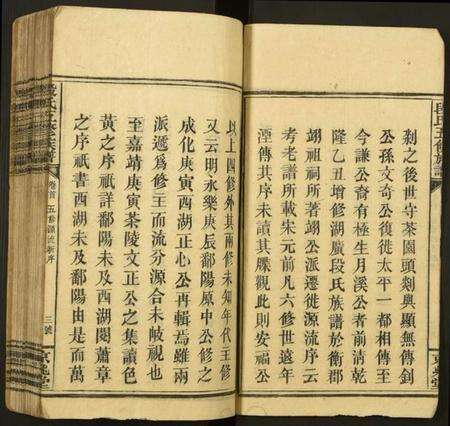 剎之後世守茶園頭剡與顯無傳釗
公孫文奇公復徙太平一都相傳至
今謙公裔有極生月溪公者前清乾
隆乙丑增修湖廣段氏族譜於衡郡
翊祖祠所著翊公派遷徙源流序云
考老譜所載宋元前凡六修世遠年
湮傳其序未讀其牒觀此則安福公
段氏五修族譜
京兆堂
以上四修外其兩修未知年代王修
又云明永樂庚辰鄱陽原中公修之
成化庚寅西湖正心公再輯焉雖兩
派遞為修王而流分源合未岐視也
至嘉靖庚寅茶陵文正公之集讀色
黃之序祇詳鄱陽未及西湖閱蕭章
之序祇書西湖未及鄱陽由是而萬
段氏五修族譜
卷首
五修源流新序
三號
京兆堂